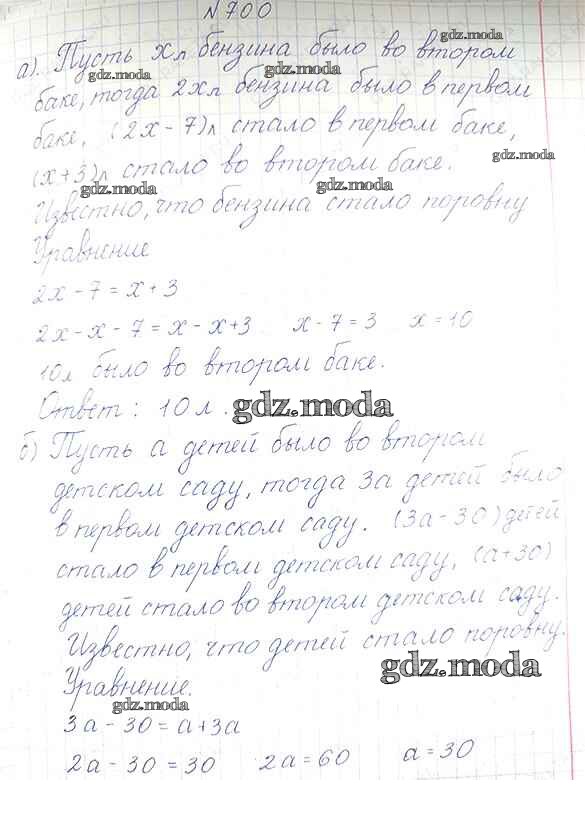 №700
а). Пусть х л бензина было во втором
gdz.moda gdz.moda
баке, тогда 2х л бензина было в первом
баке, (2х - 7) л стало в первом баке,
gdz.moda
(х+3) л стало во втором баке.
gdz.moda gdz.moda
Извстно, что бензина стало поровну
Уравнение
2х - 7 = х + 3
2х - х - 7 = х - х + 3 х - 7 = 3 х = 10
10 л было во втором баке.
Ответ: 10 л. gdz.moda
б) Пусть а детей было во втором
детском саду, тогда 3а детей было
в первом детском саду. (3а - 30) детей
стало в первом детском саду, (а+30)
детей стало во втором детском саду.
Известно, что детей стало поровну.
gdz.moda
Уравнение.
gdz.moda
3а - 30 = а + 3а
gdz.moda
2а - 30 = 30 2а = 60 а = 30